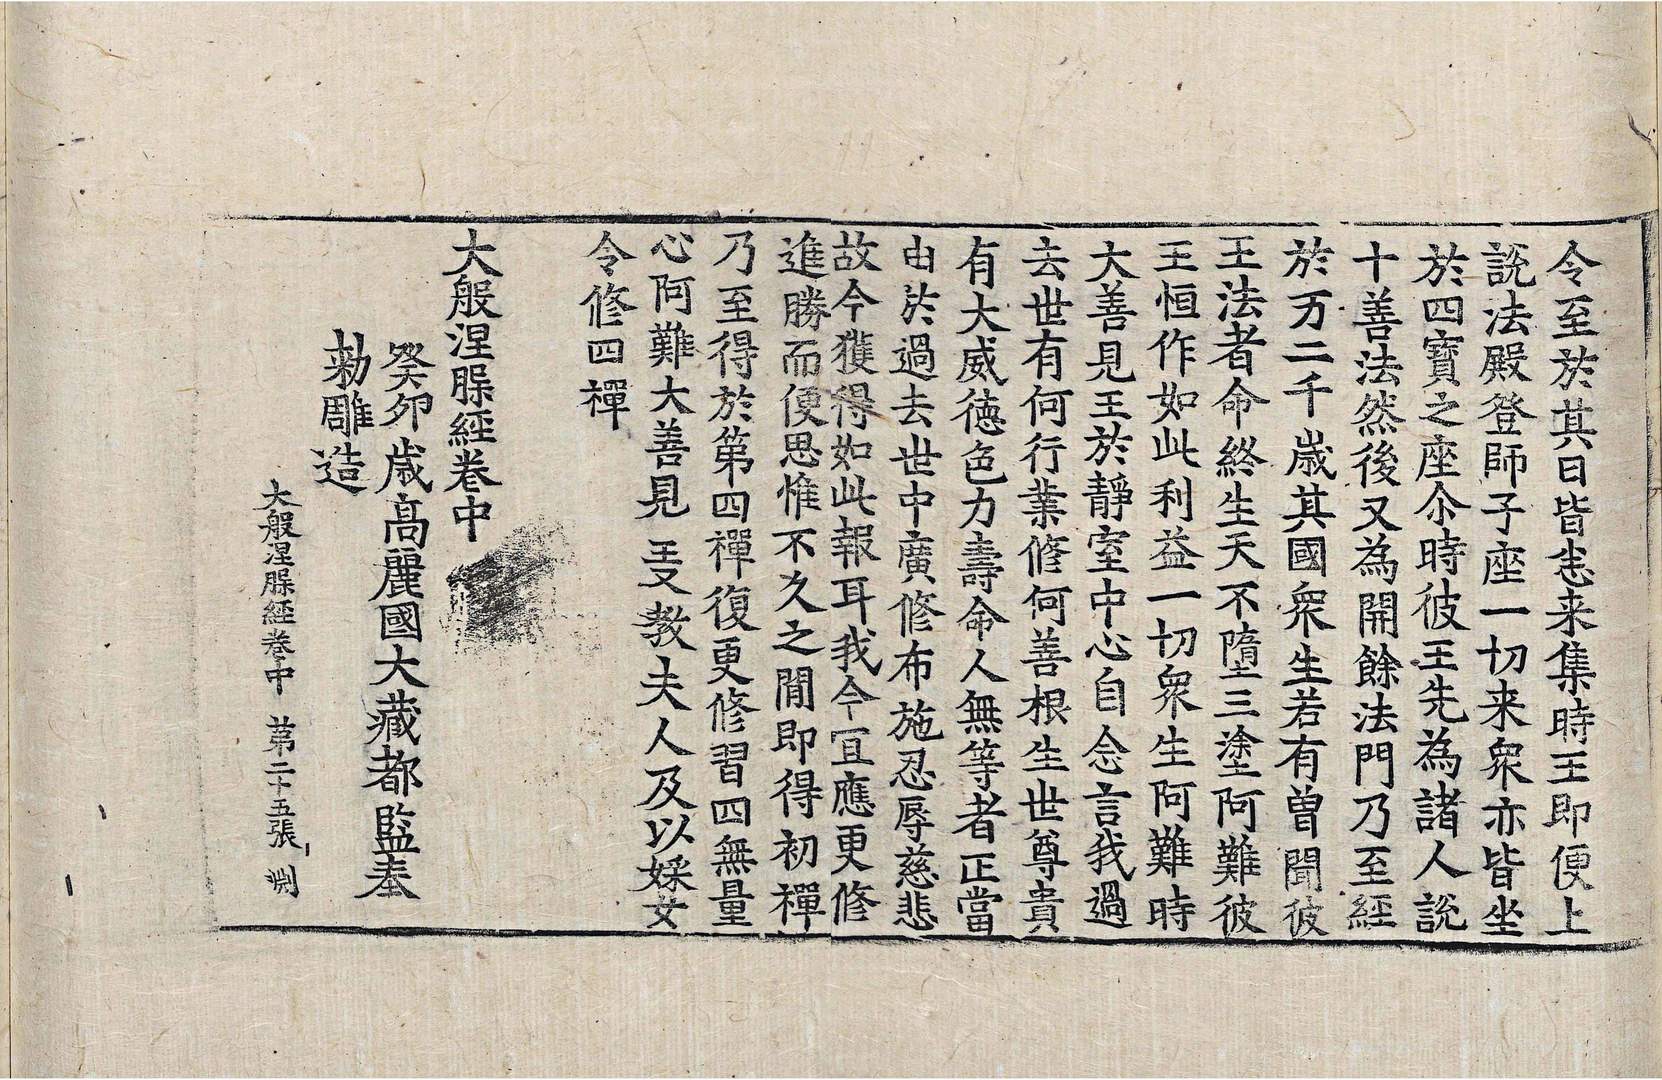 令至於其日皆悉来集時王即便上
說法殿登師子座一切来衆亦皆坐
於四寶之座尒時彼王先為諸人說
十善法然後又為開餘法門乃至經
於万二千歲其國衆生若有曽聞彼
王法者命終生天不墮三塗阿難彼
王恒作如此利益一切衆生阿難時
大善見王於靜室中心自念言我過
去世有何行業修何善根生世尊貴
有大威德色力壽命人無等者正當
由於過去世中廣修布施忍辱慈悲
故今獲得如此報耳我今冝應更修
進勝而便思惟不久之間即得初禪
乃至得於第四禪復更修習四無量
心阿難大善見王又教夫人及以婇女
令修四禪
大般涅槃經卷中
癸卯歲高麗國大藏都監奉
勑雕造
大般涅槃經卷中 第二十五張 渕